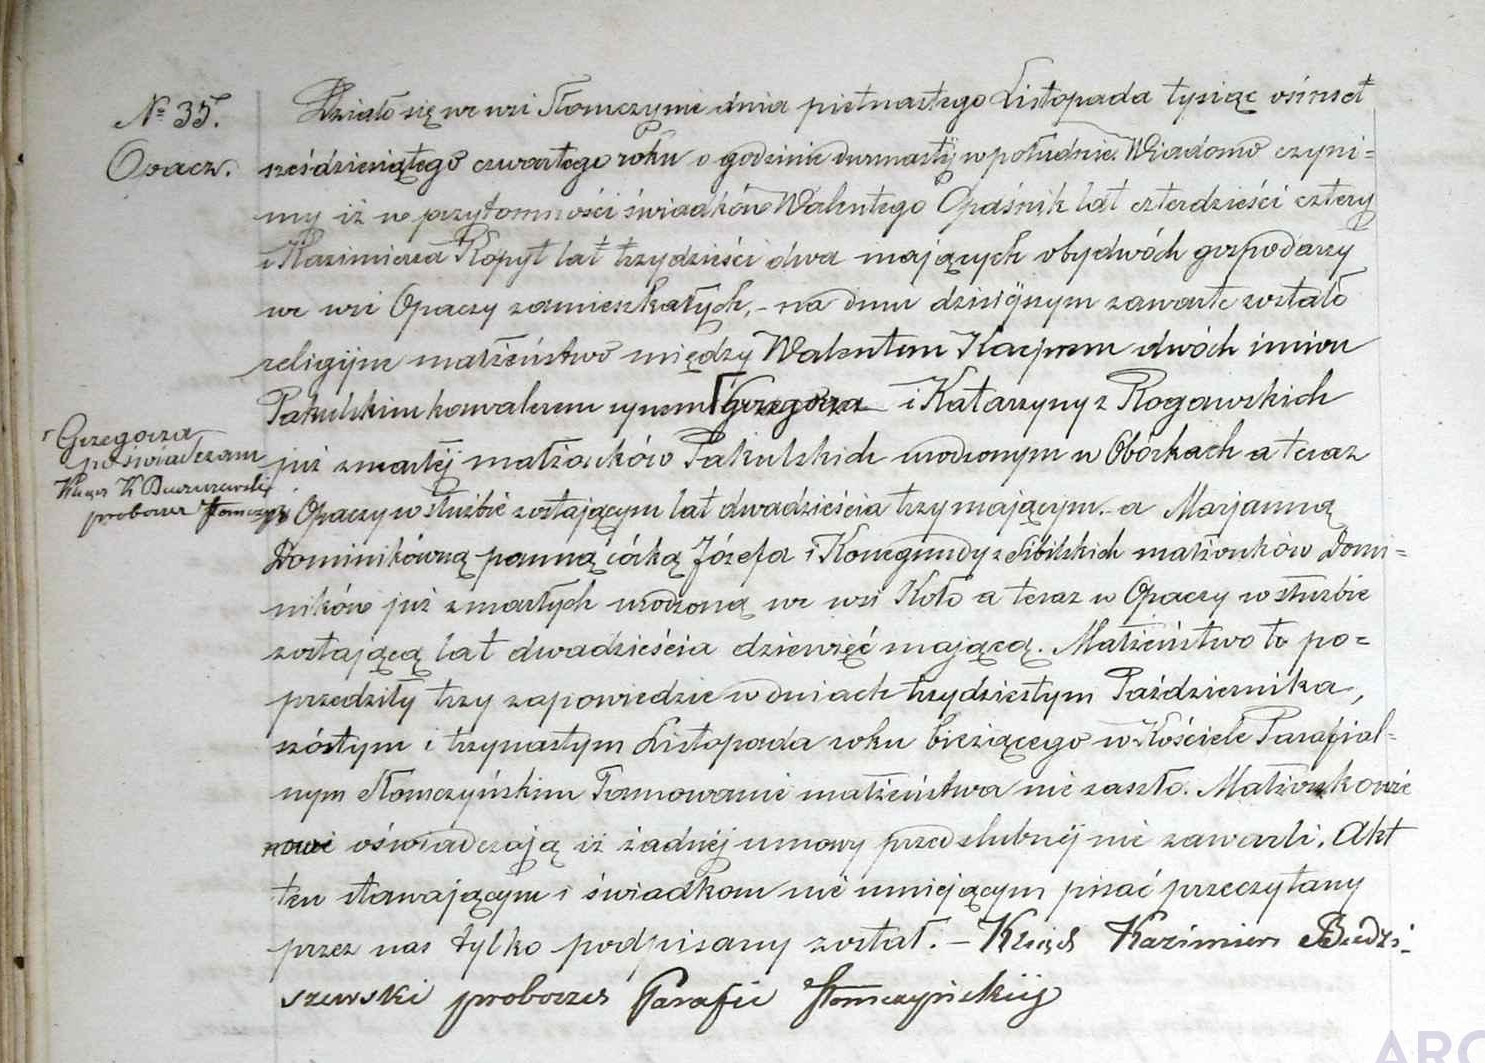 № 35.
Opacz.
Działo się we wsi Słomczynie dnia piętnastego Listopada tysiąc ośmset
sześdziesiątego czwartego roku o godzinie dwunastej w południe. Wiadomo czyni=
my iż w przytomności świadków Walentego Opaśnik lat czterdzieści cztery
i Kazimierza Kopyt lat trzydzieści dwa mających obydwóch gospodarzy
we wsi Opaczy zamieszkałych, – na dniu dzisiejszym zawarte zostało
religijne małżeństwo między Walentem Kacprem dwóch imion
Pakulskim kawalerem synem Grzegorza i Katarzyny z Rogawskich
już zmarłej małżonków Pakulskich urodzonym w Obórkach a teraz
w Opaczy w służbie zostającym lat dwadzieścia trzy mającym. – a Marjanną
Dominikówną panną córką Józefa i Konegundy z Sibilskich małżonków Domi=
ników już zmarłych urodzoną we wsi Koło a teraz w Opaczy w służbie
zostającą lat dwadzieścia dziewięć mającą. Małżeństwo to po=
przedziły trzy zapowiedzie w dniach trzydziestym Października,
szóstym i trzynastym Listopada roku bieżącego w Kościele Parafial=
nym Słomczyńskim Tamowanie małżeństwa nie zaszło. Małżonkowie
nowi oświadczają iż żadnej umowy przedślubnej nie zawarli. Akt
ten stawającym i świadkom nie umiejącym pisać przeczytany
przez nas tylko podpisany został. – Ksiądz Kazimierz Budzi-
szewski proboszcz Parafii Słomczyńskiej
Grzegorza
poświadczam
Ksiądz K Budziszewski
proboszcz Słomczyń
ARC